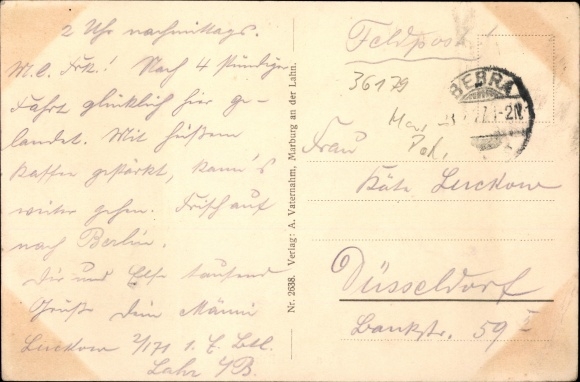 2 Uhr nachmittags.
M. l. Frk.! Nach 4 stündiger
Fahrt glücklich hier ge-
landet. Mit süßem
Kaffee gestärkt, kann's
weiter gehen. Frisch auf
nach Berlin.
Dir und Else tausend
Grüße Dein Männi
Luckow 2/171 1. E. Btl.
Lahr i/B.
Nr. 2638. Verlag: A. Vaternahm, Marburg an der Lahn.
Feldpost
36179
BEBRA
Frau
Käte Luckow
Düsseldorf
Bankstr. 59 I